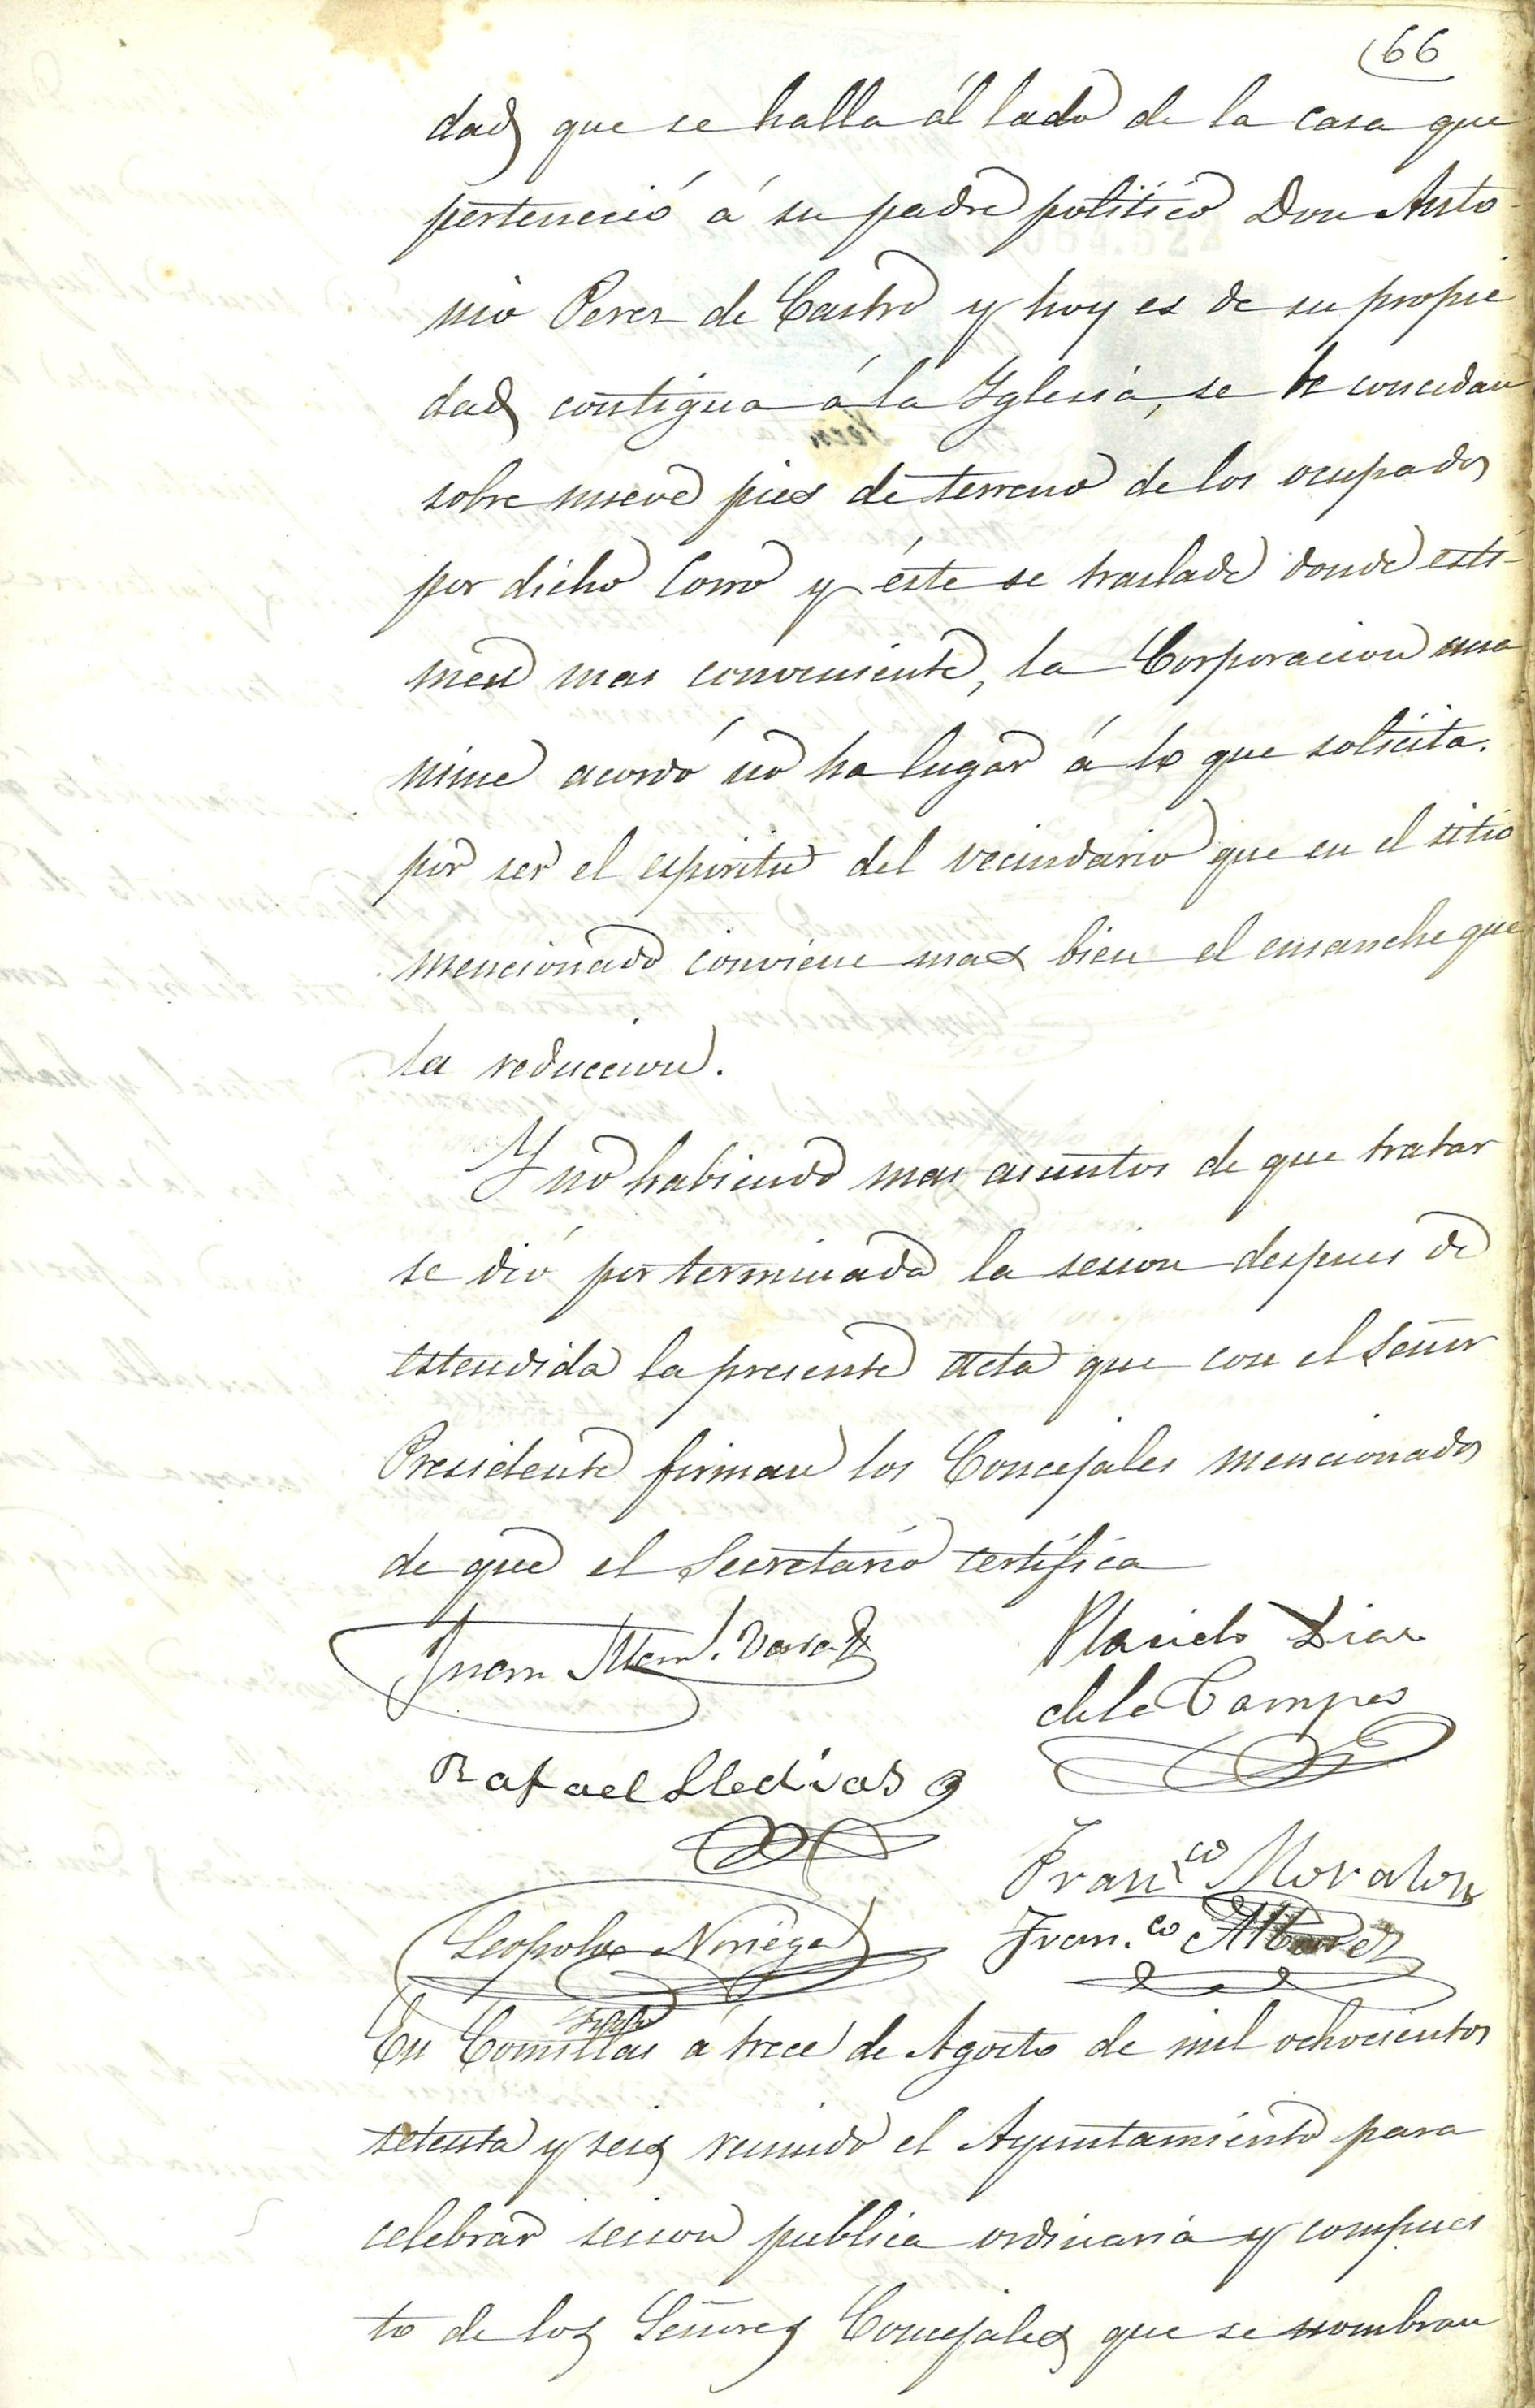 66
dad que se halla ál lado de la casa que
perteneció á su padre politico Don Anto
nio Perez de Castro y hoy es de su propie
dad contigua á la Yglesia, se le concedan
sobre nueve pies de terreno de los ocupados
por dicho Corro y éste se traslade donde esti-
men mas conveniente, la Corporacion una
nime acordó no ha lugar á lo que solicita.
por ser el espiritu del vecindario que en el sitio
mencionado conviene mas bien el ensanche que
la reduccion.
Y no habiendo mas asuntos de que tratar
se dió por terminada la sesion despues de
estendida la presente acta que con el Señor
Presidente firman los Concejales mencionados
de que el Secretario certifica
Juan
Placido Diaz
de la Campa
Rafael
Fran.co Moralon
Leopoldo Noriega
Fran.co
En Comillas á trece de Agosto de mil ochocientos
setenta y seis reunido el Ayuntamiento para
celebrar sesion publica ordinaria y compues
to de los Señores Concejales que se nombran